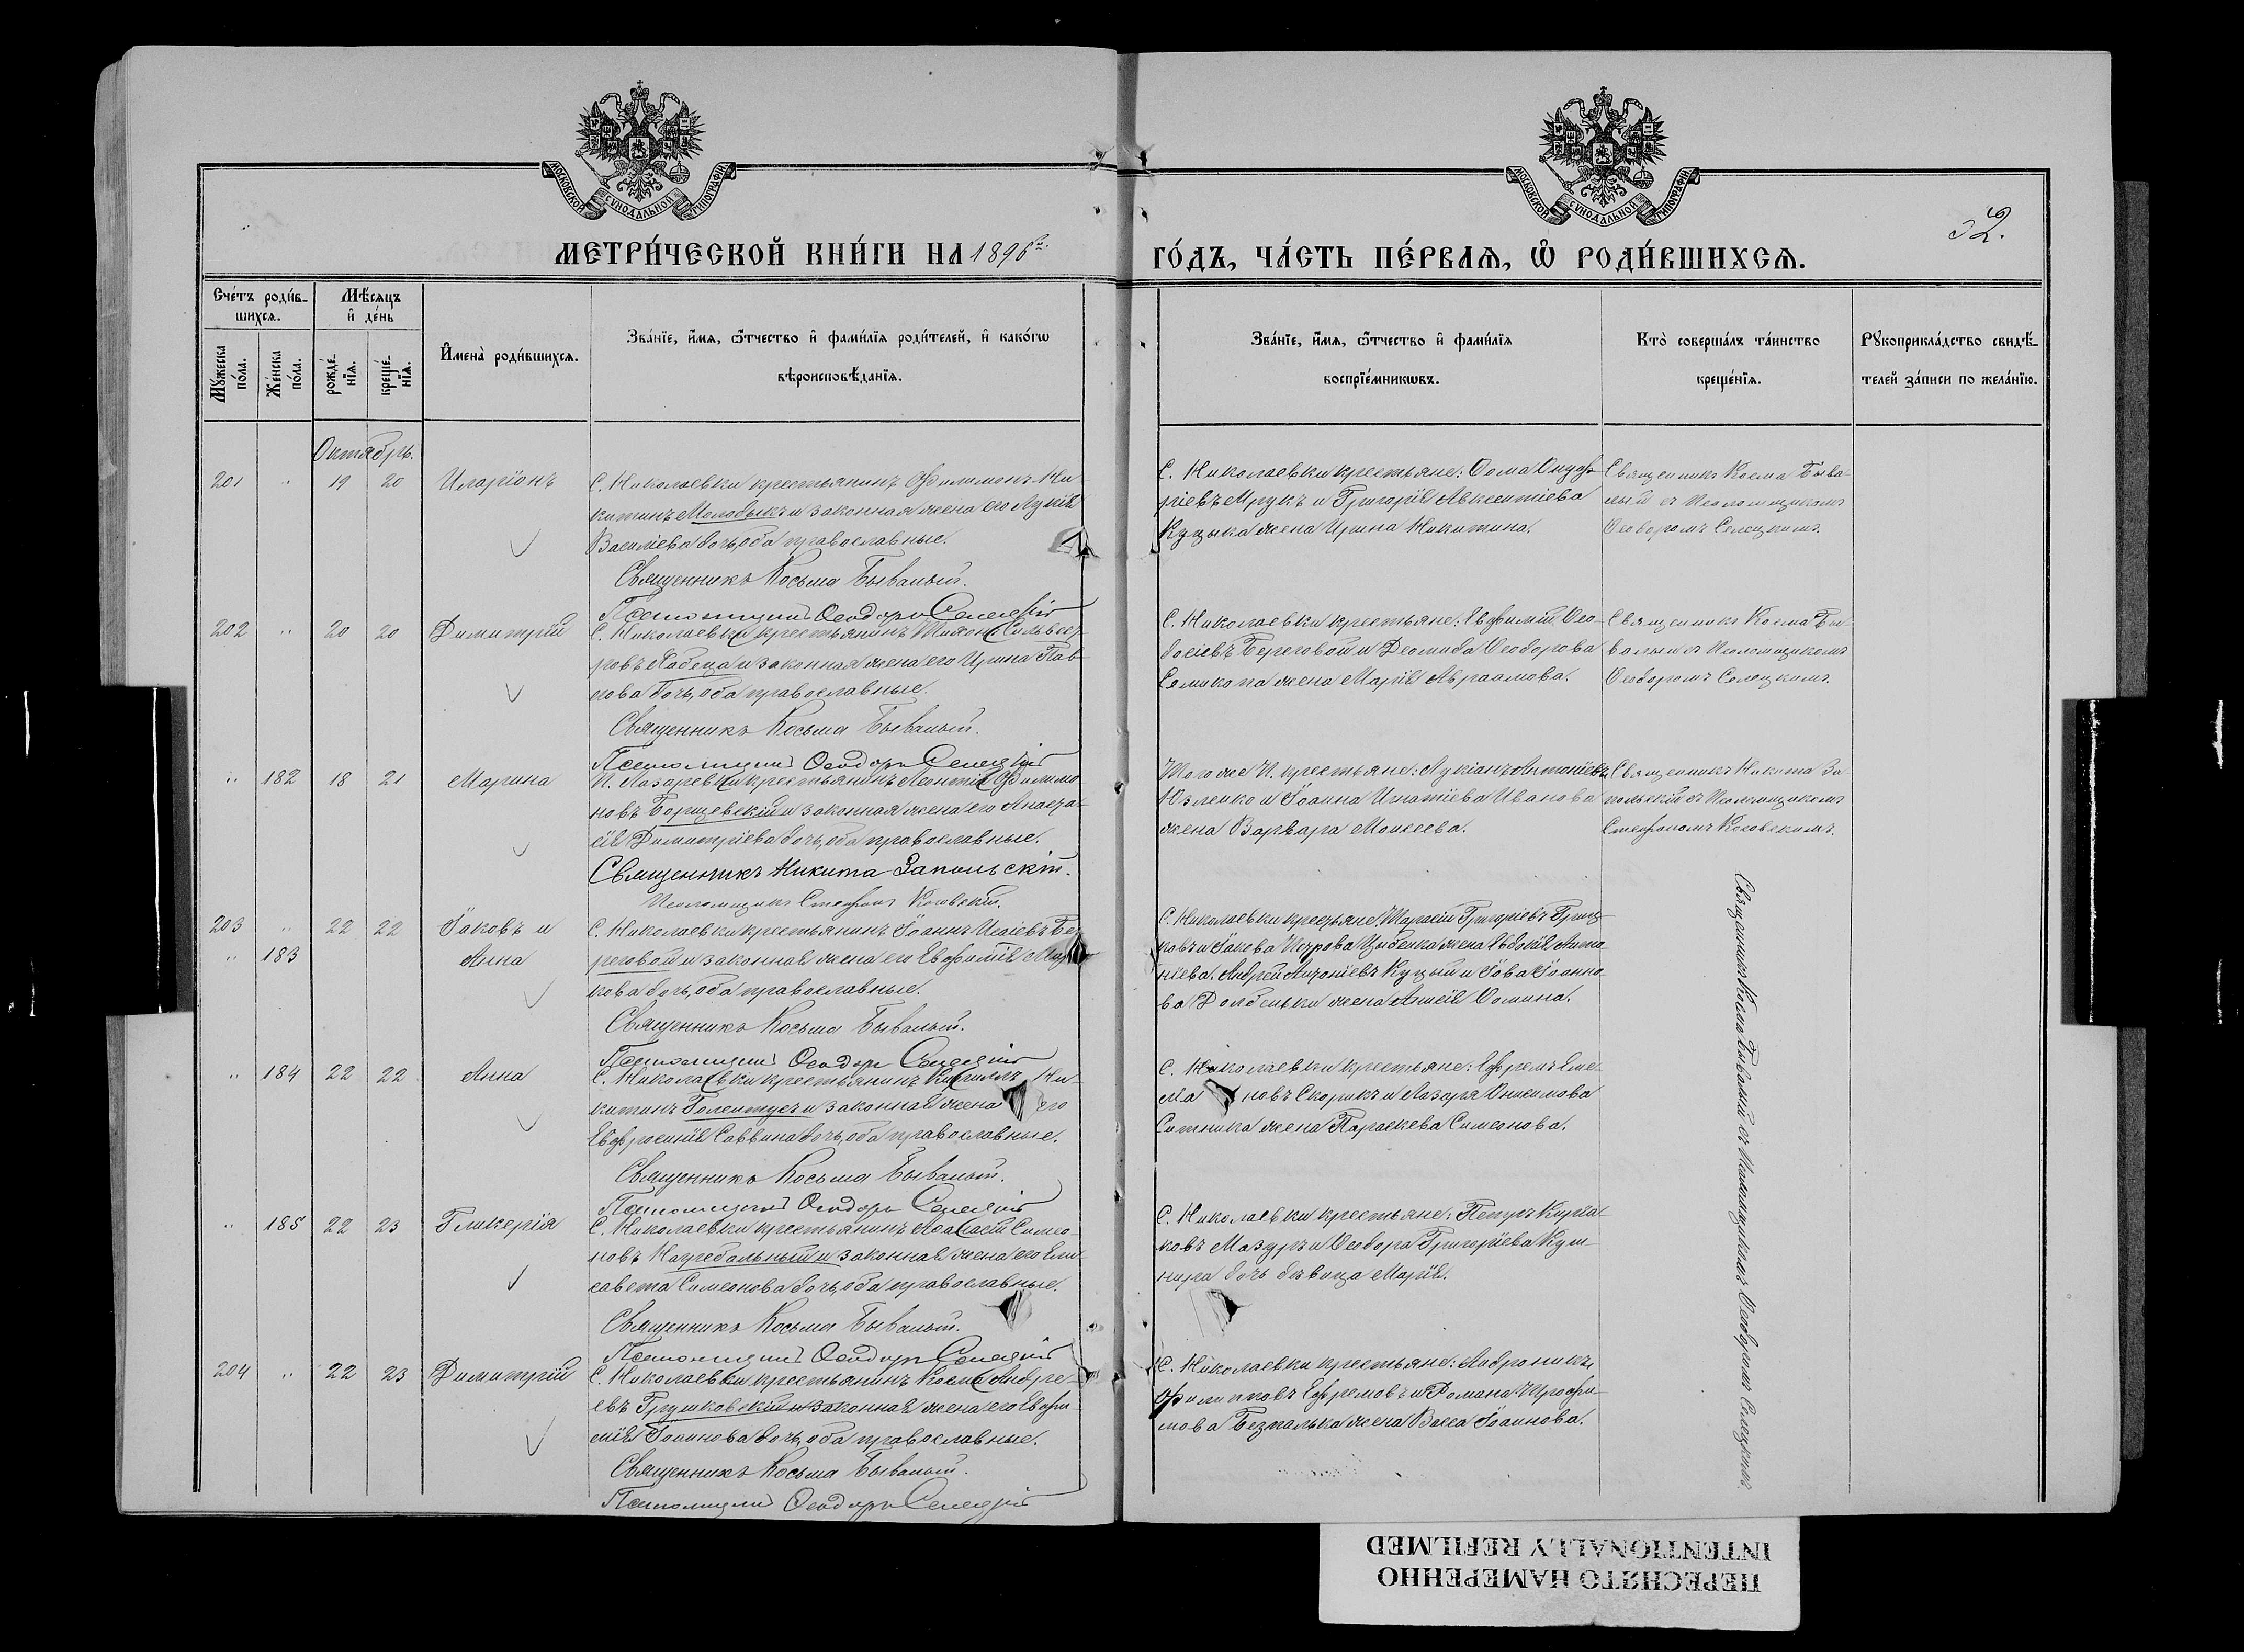 МОСКОВСКОЙ СѴНОДАЛЬНОЙ ТИПОГРАФІИ
МОСКОВСКОЙ СѴНОДАЛЬНОЙ ТИПОГРАФІИ
52.
МЕТРИ́ЧЕСКОЙ КНИ́ГИ НА 1896й
ГО́ДЪ, ЧА́СТЬ ПЕ́РВАѦ, Ѡ РОДИ́ВШИХСѦ.
Сче́тъ роди́в-
шихсѧ.
Мѣ́сѧцъ
и де́нь
Мꙋ́жеска по́ла.
Же́нска по́ла.
рожде́-
нїѧ.
креще́-
нїѧ.
Имена̀ роди́вшихсѧ.
Зва́нїе, и́мѧ, ѻ҆́тчество и фами́лїѧ роди́телей, и како́гѡ
вѣроисповѣ́данїѧ.
Зва́нїе, и́мѧ, ѻ҆́тчество и фами́лїѧ
воспрїе́мникѡвъ.
Кто̀ соверша́лъ та́инство
креще́нїѧ.
Рꙋкоприкла́дство свидѣ́-
телей за́писи по жела́нїю.
Октябрь.
201 " 19 20 Иларіонъ
С. Николаевки крестьянинъ Филимонъ Ни-
китинъ Молобыкъ и законная жена его Лукія
Василіева дочь, оба православные.
Священникъ Косьма Бывалый.
Псаломщикъ Ѳеодоръ Селецкій
С. Николаевки крестьяне: Ѳома Онуф-
ріевъ Мрукъ и Григорія Авксентіева
Куцыка жена Ирина Никитина.
Священникъ Косма Быва-
лый съ Псаломщикомъ
Ѳеодоромъ Селецкимъ.
202 " 20 20 Димитрій
С. Николаевки крестьянинъ Тихонъ Сильвест-
ровъ и законная жена его Ирина Пав-
лова дочь, оба православные.
Священникъ Косьма Бывалый.
Псаломщикъ Ѳеодоръ Селецкій
С. Николаевки крестьяне: Евфимій Ѳео-
досіевъ Береговой и Діомида Ѳеодорова
Семикопа жена Марія Авраамова.
Священникъ Косма Бы-
валый съ Псаломщикомъ
Ѳеодоромъ Селецкимъ.
" 182 18 21 Марина
П. Лазаревки крестьянинъ Леонтій Филимо-
новъ Борщевскій и законная жена его Анаста-
сія Димитріева дочь, оба православные.
Священникъ Никита Запольскій.
Псаломщикъ Стефанъ Косовскій.
Того же П. крестьяне: Лукіанъ Антоніевъ
Юзленко и Іоанна Игнатіева Иванова
жена Варвара Моисеева.
Священникъ Никита За-
польскій съ Псаломщикомъ
Стефаномъ Косовскимъ.
203 " 22 22 Іаковъ и
" 183 Анна
С. Николаевки крестьянинъ Іоаннъ Исаіевъ Бе-
реговой и законная жена его Евфимія Мар-
кова дочь, оба православные.
Священникъ Косьма Бывалый.
Псаломщикъ Ѳеодоръ Селецкій
С. Николаевки крестьяне: Тарасій Григоріевъ Гриц-
ковъ и Іакова Петрова Цыбенка жена Евдокія Анто-
ніева. Андрей Антоніевъ Куцый и Іова Іоанно-
ва Долбеньки жена Анисія Ѳомина.
Священникъ Косма Бывалый съ Псаломщикомъ Ѳеодоромъ Селецкимъ.
" 184 22 22 Анна
С. Николаевки крестьянинъ Кириллъ Ни-
китинъ и законная жена его
Евфросинія Саввина дочь, оба православные.
Священникъ Косьма Бывалый.
Псаломщикъ Ѳеодоръ Селецкій
С. Николаевки крестьяне: Ефремъ Еме-
ліановъ Скорикъ и Лазаря Онисимова
Ситника жена Параскева Симеонова.
" 185 22 23 Гликерія
С. Николаевки крестьянинъ Аѳанасій Симео-
новъ Нагребальный и законная жена его Ели-
савета Симеонова дочь, оба православные.
Священникъ Косьма Бывалый.
Псаломщикъ Ѳеодоръ Селецкій
С. Николаевки крестьяне: Петръ Киріа-
ковъ Мазуръ и Ѳеодора Григоріева Куш-
нира дочь дѣвица Марія.
204 " 22 23 Димитрій
С. Николаевки крестьянинъ Косма Андре-
евъ Грушковскій и законная жена его Евфи-
мія Іоаннова дочь, оба православные.
Священникъ Косьма Бывалый.
Псаломщикъ Ѳеодоръ Селецкій
С. Николаевки крестьяне: Андроникъ
Филипповъ Ефремовъ и Романа Трофи-
мова Безпалька жена Васса Іоаннова.
ПЕРЕСНЯТО НАМЕРЕННО
INTENTIONALLY REFILMED